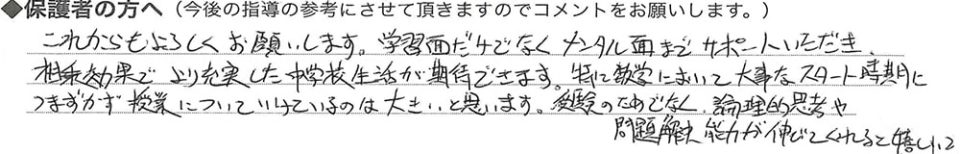 ◆保護者の方へ（今後の指導の参考にさせて頂きますのでコメントをお願いします。）
これからもよろしくお願いします。学習面だけでなくメンタル面までサポートいただき、
相乗効果でより充実した中学校生活が期待できます。特に数学において大事なスタート時期に
つまずかず授業についていけているのは大きいと思います。受験のためでなく、論理的思考や
問題解決能力が伸びてくれると嬉しいで